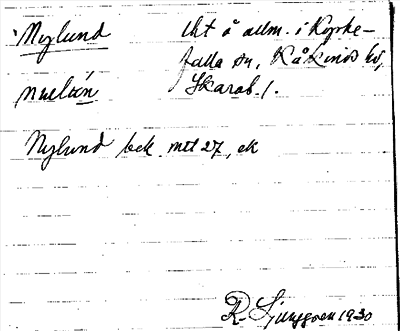 Nylund Utä å allm. i Kyrke-
falla sn, Kåkinds hd,
Skarab. l.
Nylund bek. mtl 27, ek
R. Ljunggren 1930